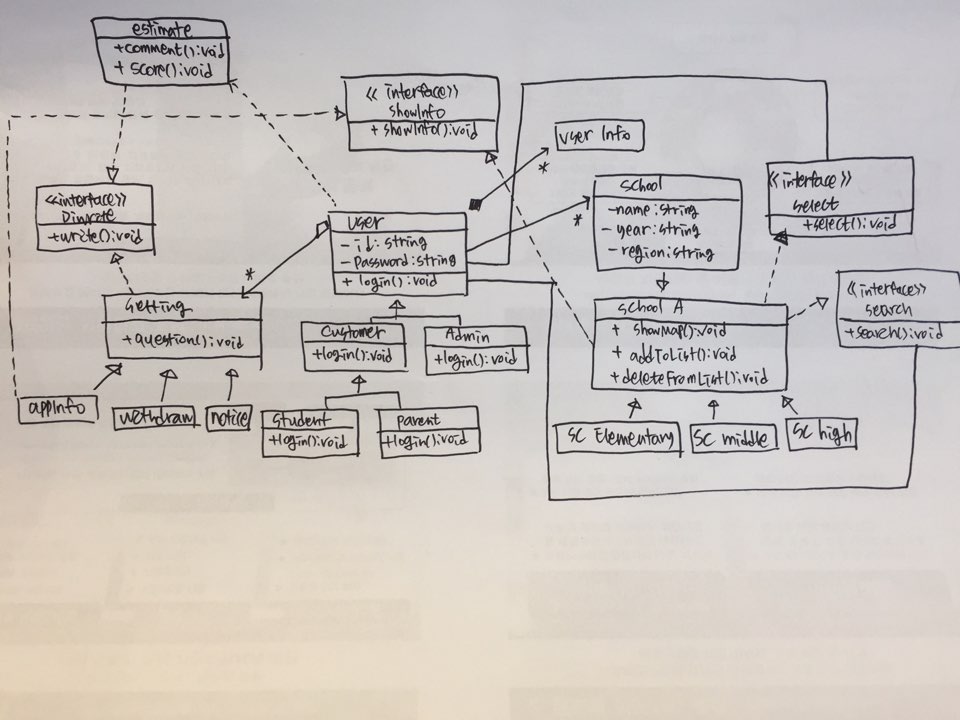 estimate
+comment():void
+score():void
<< interface>>
showInfo
+ showInfo():void
User Info
*
<<interface>>
+write():void
User
- id: string
- Password:string
+ login():void
*
School
-name:string
- year:string
- region:string
*
<<interface>>
select
+select():void
Setting
+question():void
*
School A
+ showMap():void
+ addToList():void
+deleteFromList():void
<<interface>>
search
+search():void
Customer
+login():void
Admin
+login():void
appInfo
withdraw
notice
Student
+login():void
parent
+login():void
SC Elementary
SC middle
SC high